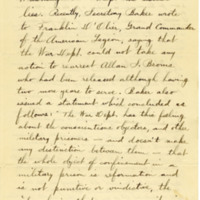 lies. Recently, Secretary Baker wrote
to Franklin D'Olier, Grand Commander
of the American Legion, saying that
the War Dept. could not take any
action to rearrest Allan S. Broms
who had been released although having
two more years to serve. Baker also
issued a statement which concluded as
follows: "The War Dept. has this feeling
about the conscientious objectors, and other
military prisoners — and doesn't make
any distinction between them — that
the whole object of confinement in a
military prison is reformation and
is not punitive or vindictive, the